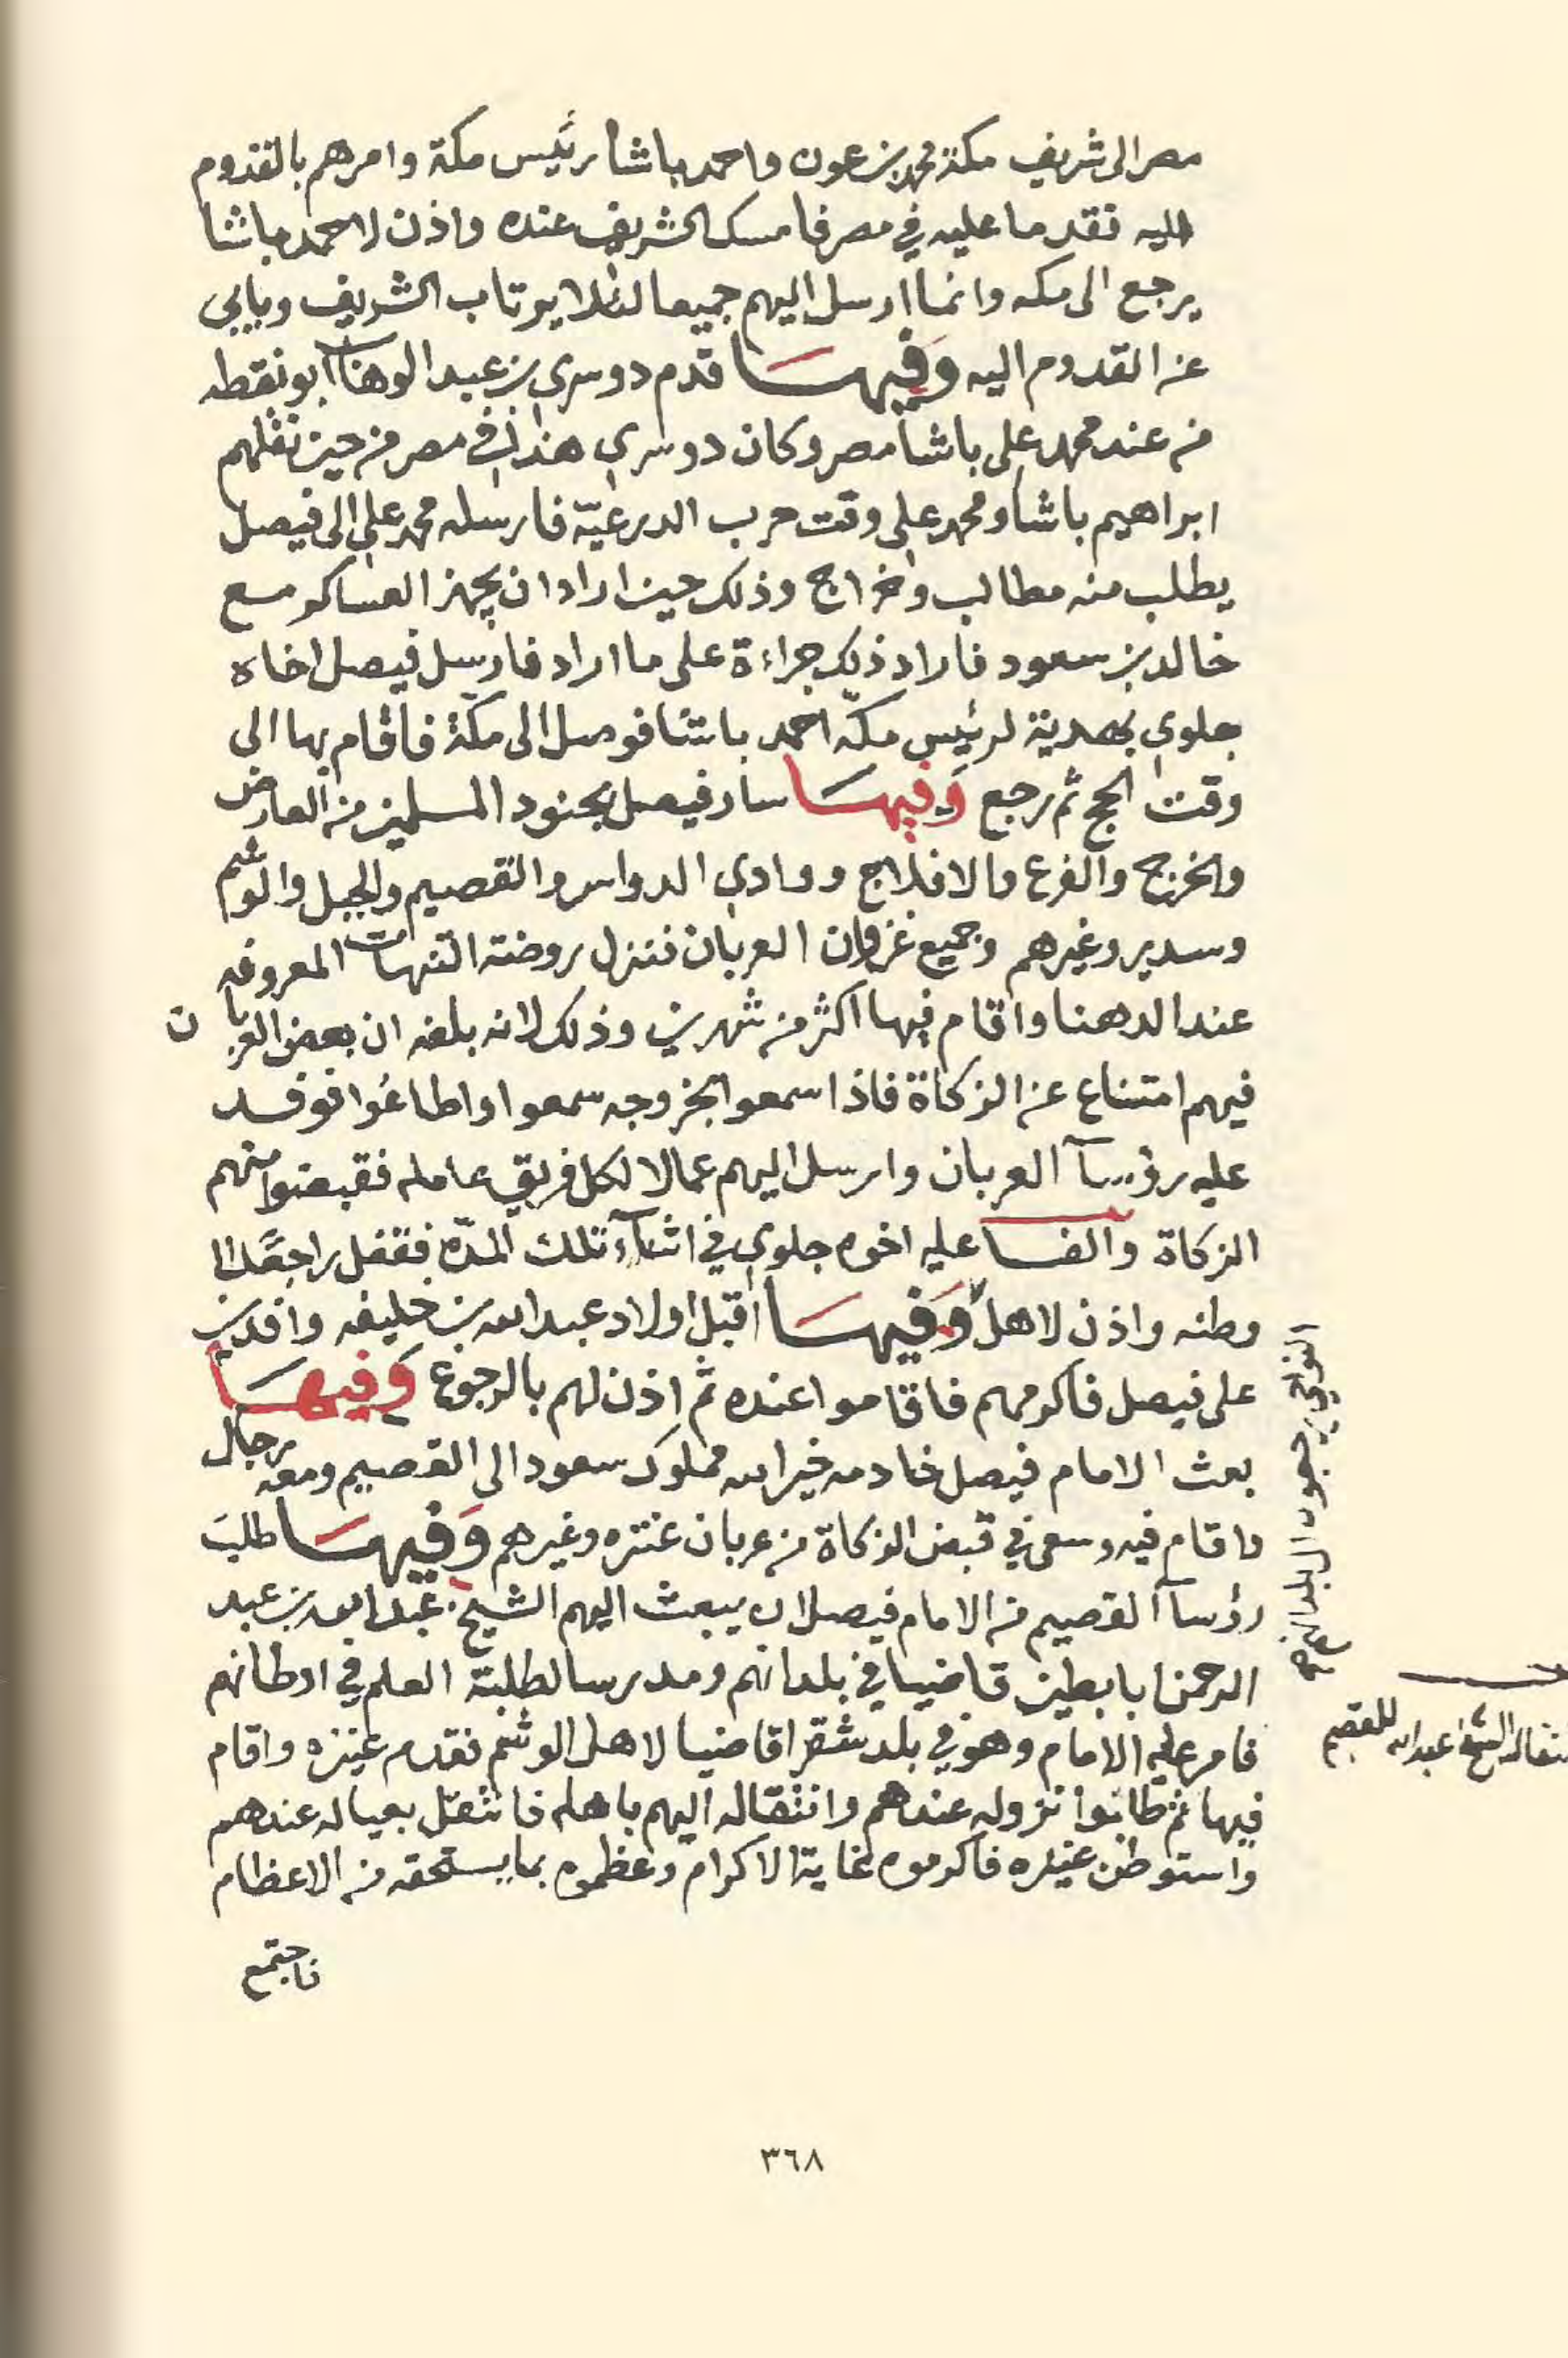 مصر الى شريف مكة محمد بن عون واحمد باشا رئيس مكة وامرهم بالقدوم
اليه فقدما عليه في مصر فامسك الشريف عنده واذن لاحمد باشا
يرجع الى مكه وانما ارسل اليهم جميعا لئلا يرتاب الشريف ويابى
عن القدوم اليه وَفيهَا قدم دوسري بن عبد الوهاب ابو نقطه
من عند محمد على باشا مصر وكان دوسري هذا في مصر من حين نقلهم
ابراهيم باشا ومحمد على وقت حرب الدرعيّه فارسله محمد على الى فيصل
يطلب منه مطالب وخراج وذلك حين اراد ان يجهز العساكر مع
خالد بن سعود فاراد ذلك جراءة على ما اراد فارسل فيصل اخاه
جلوي بهدية لرئيس مكّه احمد باشا فوصل الى مكّة فاقام بها الى
وقت الحج ثم رجع وَفيهَا سار فيصل بجنود المسلمين من العارض
والخرج والفرع والافلاج ووادي الدواسر والقصيم والجبل والوشم
وسدير وغيرهم وجميع غزوان العربان فنزل روضة التنهات المعروفه
عند الدهنا واقام فيها اكثر من شهرين وذلك لانه بلغه ان بعض العربان
فيهم امتناع عن الزكاة فاذا سمعوا بخروجه سمعوا واطاعوا فوفد
عليه رؤسآ العربان وارسل اليهم عمالا لكل فريق عامله فقبضوا منهم
الزكاة والفا عليه اخوه جلوي في اثنآء تلك المدّه فقفل راجعًا الا
وطنه واذن لاهل وَفيهَا اقبل اولاد عبد الله بن خليفه وافدين
على فيصل فاكرمهم فاقاموا عنده ثم اذن لهم بالرجوع وَفيهَا
بعث الامام فيصل خادمه خير الله مملوك سعود الى القصيم ومعه رجال
واقام فيه وسعى في قبض الزكاة من عربان عنزه وغيرهم وَفيهَا طلبَ
رؤسآ القصيم من الامام فيصل ان يبعث اليهم الشيخ عبد الله بن عبد
الرحمن ابا بطين قاضيا في بلدانهم ومدرسا لطلبة العلم في اوطانهم
فامر عليه الامام وهو في بلد شقرا قاضيا لاهل الوشم فقدم عنيزه واقام
فيها ثم طلبوا نزوله عندهم وانتقاله اليهم باهله فانتقل بعياله عندهم
واستوطن عنيزه فاكرموه غاية الاكرام وعظموه بما يستحقه من الاعظام
فاجتمع
النواحي يرجعون الى بلدانهم
صح
انتقالة الشيخ عبد الله للقصيم
٣٦٨